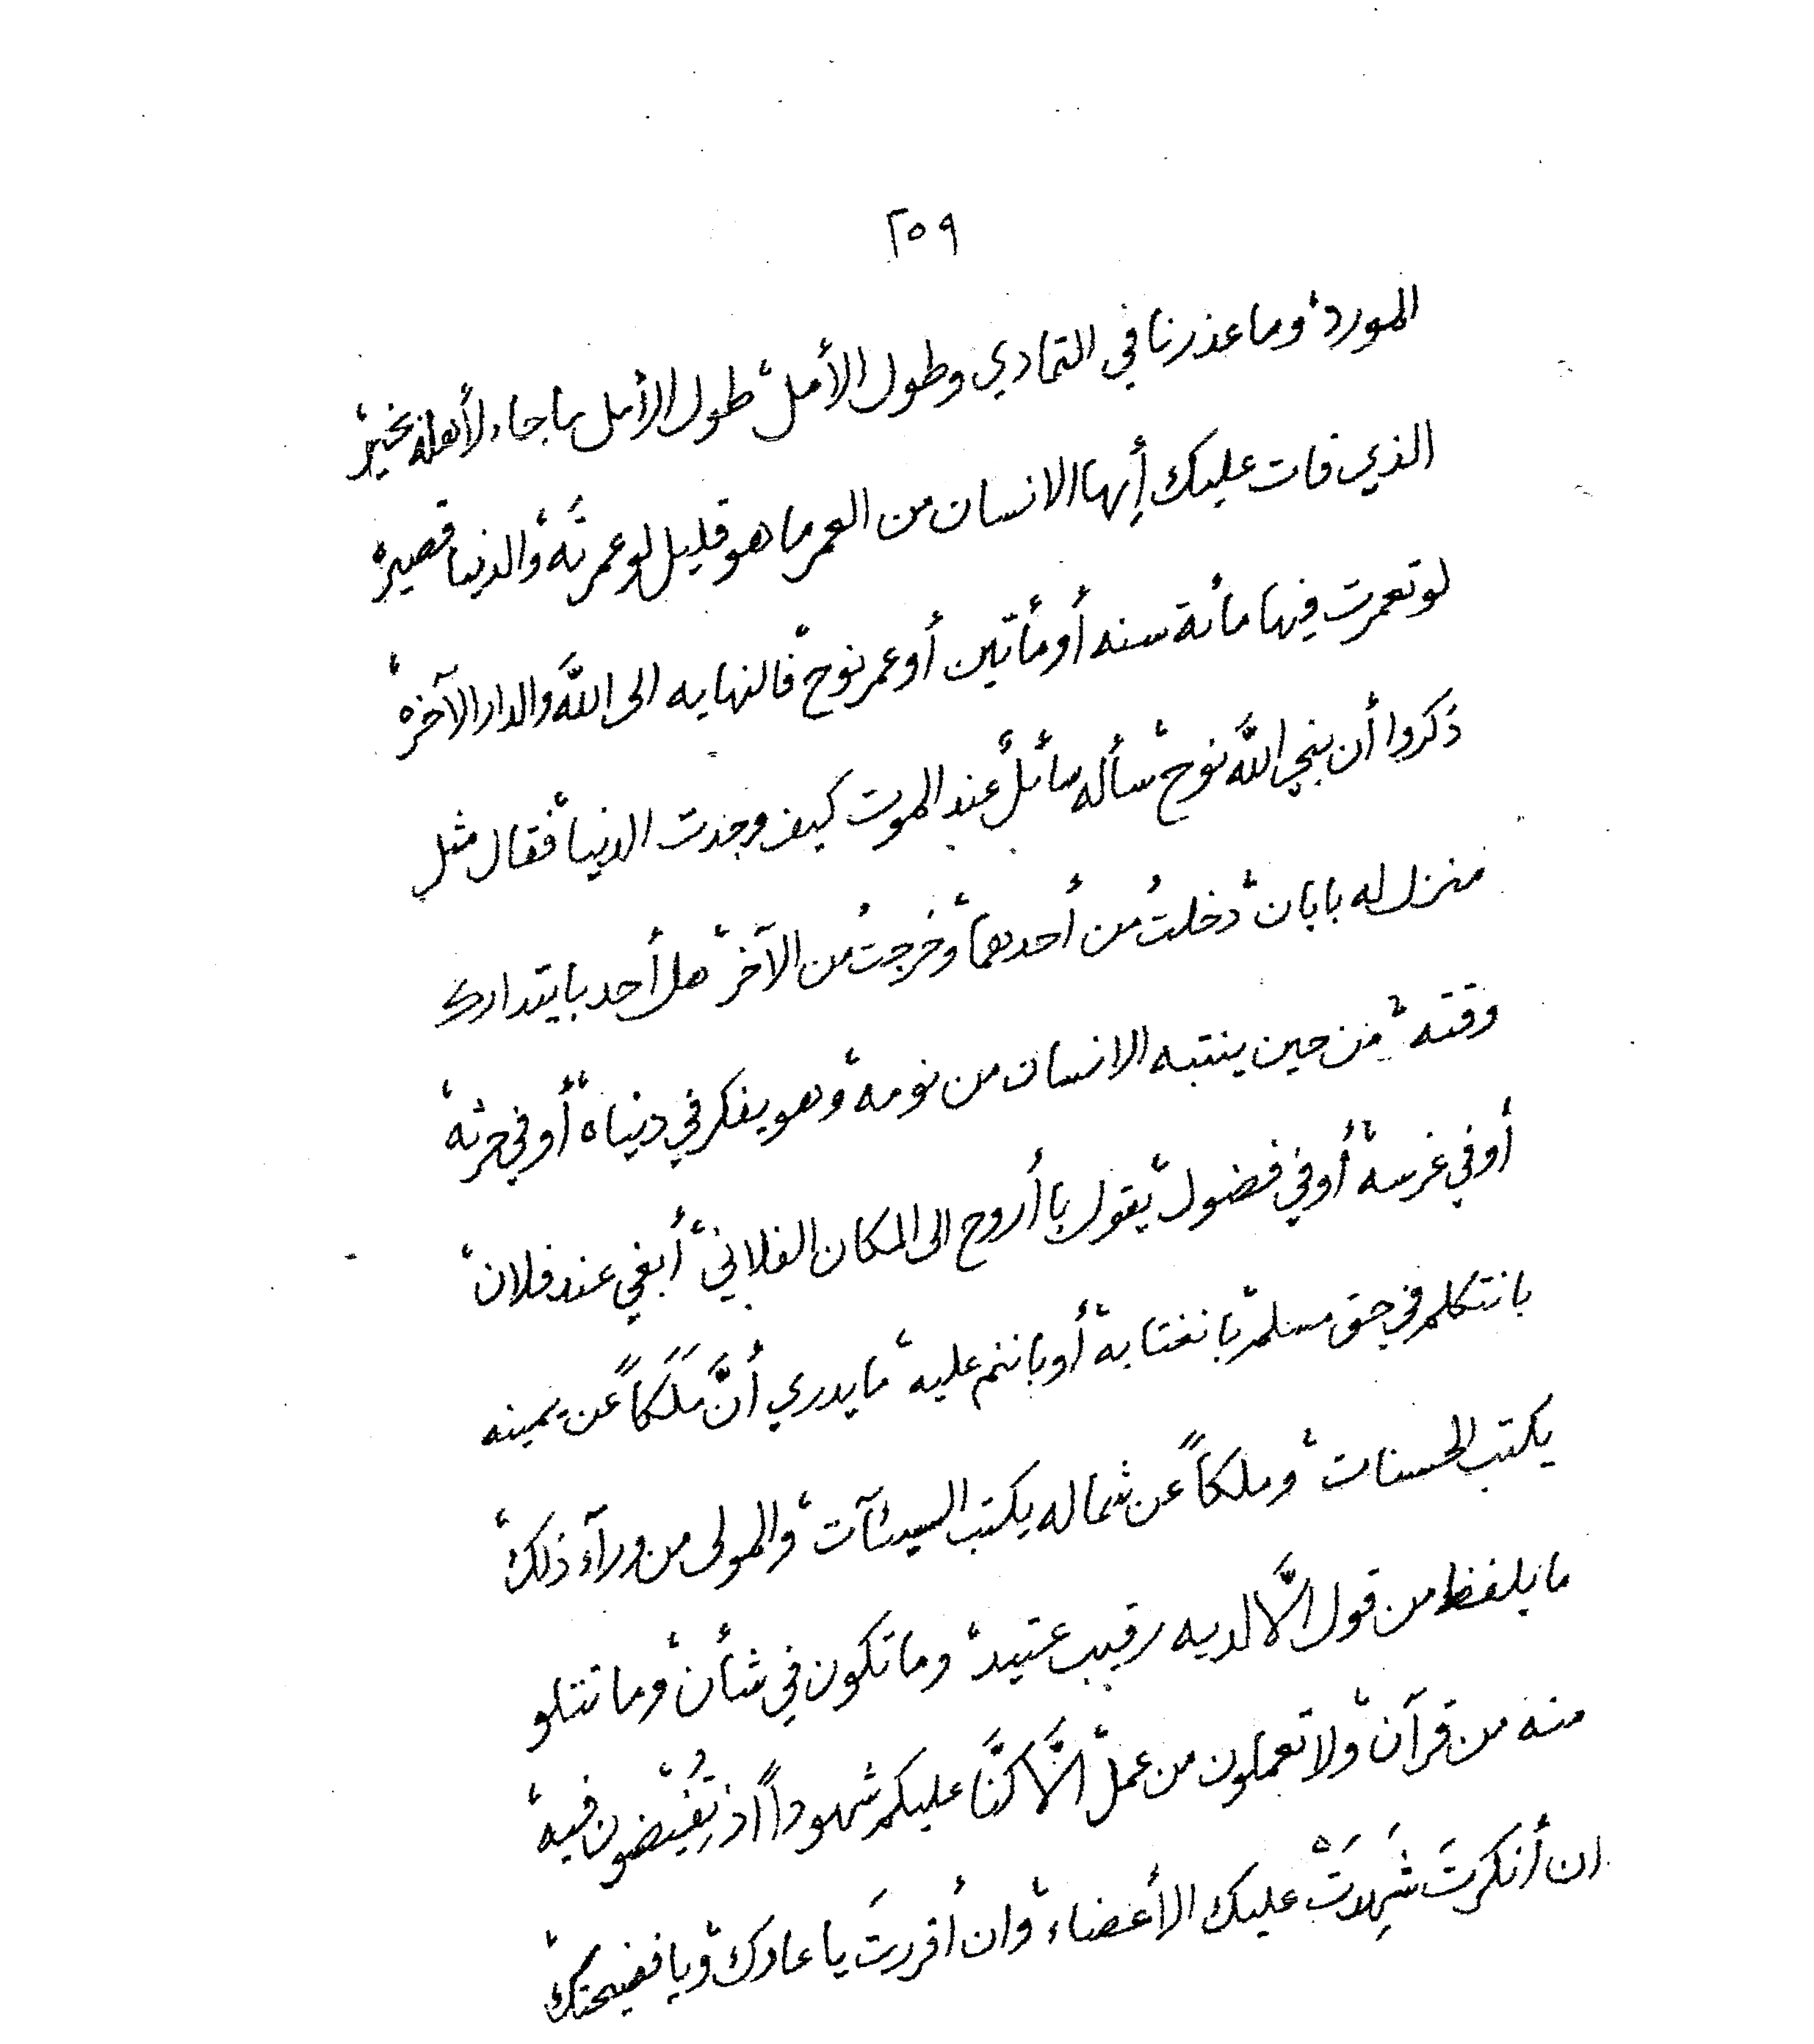 ٢٥٩
المورد، وما عذرنا في التمادي وطول الأمل، طول الأمل ما جاء لأهله بخير،
الذي فات عليك أيها الانسان من العمر ما هو قليل لو عمرته، والدنيا قصيرة
لو تعمرت فيها مائة سنه أو مأتين أو عمر نوح، فالنهايه الى الله والدار الآخرة،
ذكروا أن نبي الله نوح، سأله سائلٌ عند الموت كيف وجدت الدنيا، فقال مثل
منزل له بابان، دخلتُ من أحدهما، وخرجتُ من الآخر، هل أحد با يتدارك
وقته، من حين ينتبه الانسان من نومه، وهو يفكر في دنياه، أو في حرثه،
أو في غرسه، أو في فضول، يقول با أروح الى المكان الفلاني، أبغي عند فلان،
با نتكلم في حق مسلم، با نغتابه، أو با ننم عليه، ما يدري أنَّ مَلَكاً عن يمينه
يكتب الحسنات، وملكاً عن شماله يكتب السيئآت، والمولى من ورآء ذلك،
ما يلفظ من قول الَّا لديه رقيب عتيد، وما تكون في شأن، وما تتلو
منه من قرآن، ولا تعملون من عمل، الَّا كنَّا عليكم شهوداً اذ تُفيضون فيه،
ان أنكرتَ شَهِدَتْ عليك الأعضاء، وان أقررتَ يا عارك، ويا فضيحتك،